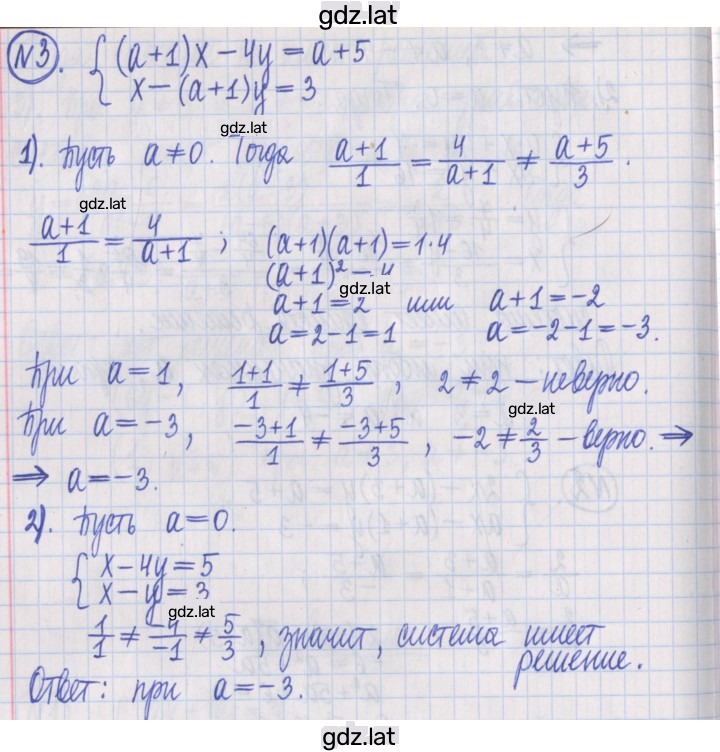 gdz.lat
№3. { (a+1)x − 4y = a+5
x − (a+1)y = 3
gdz.lat
1). Пусть a ≠ 0. Тогда (a+1)/1 = 4/(a+1) ≠ (a+5)/3.
gdz.lat
(a+1)/1 = 4/(a+1) ; (a+1)(a+1) = 1·4
(a+1)² = 4
gdz.lat
a+1 = 2 или a+1 = −2
a = 2−1 = 1 a = −2−1 = −3.
При a = 1, (1+1)/1 ≠ (1+5)/3 , 2 ≠ 2 – неверно.
gdz.lat
При a = −3, (−3+1)/1 ≠ (−3+5)/3 , −2 ≠ 2/3 – верно. ⇒
⇒ a = −3.
2). Пусть a = 0.
{ x − 4y = 5
x − y = 3
gdz.lat
1/1 ≠ −4/−1 ≠ 5/3 , значит, система имеет
решение.
Ответ: при a = −3.
gdz.lat